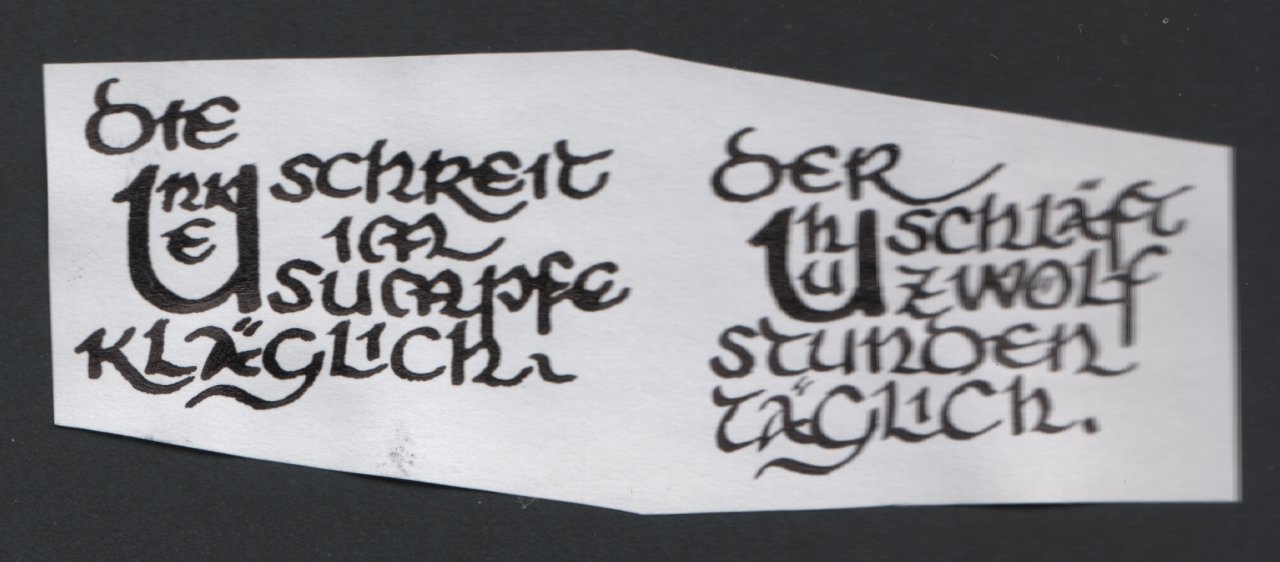 die
Unke schreit
im
sumpfe
kläglich.
der
Uhu schläft
zwölf
stunden
täglich.